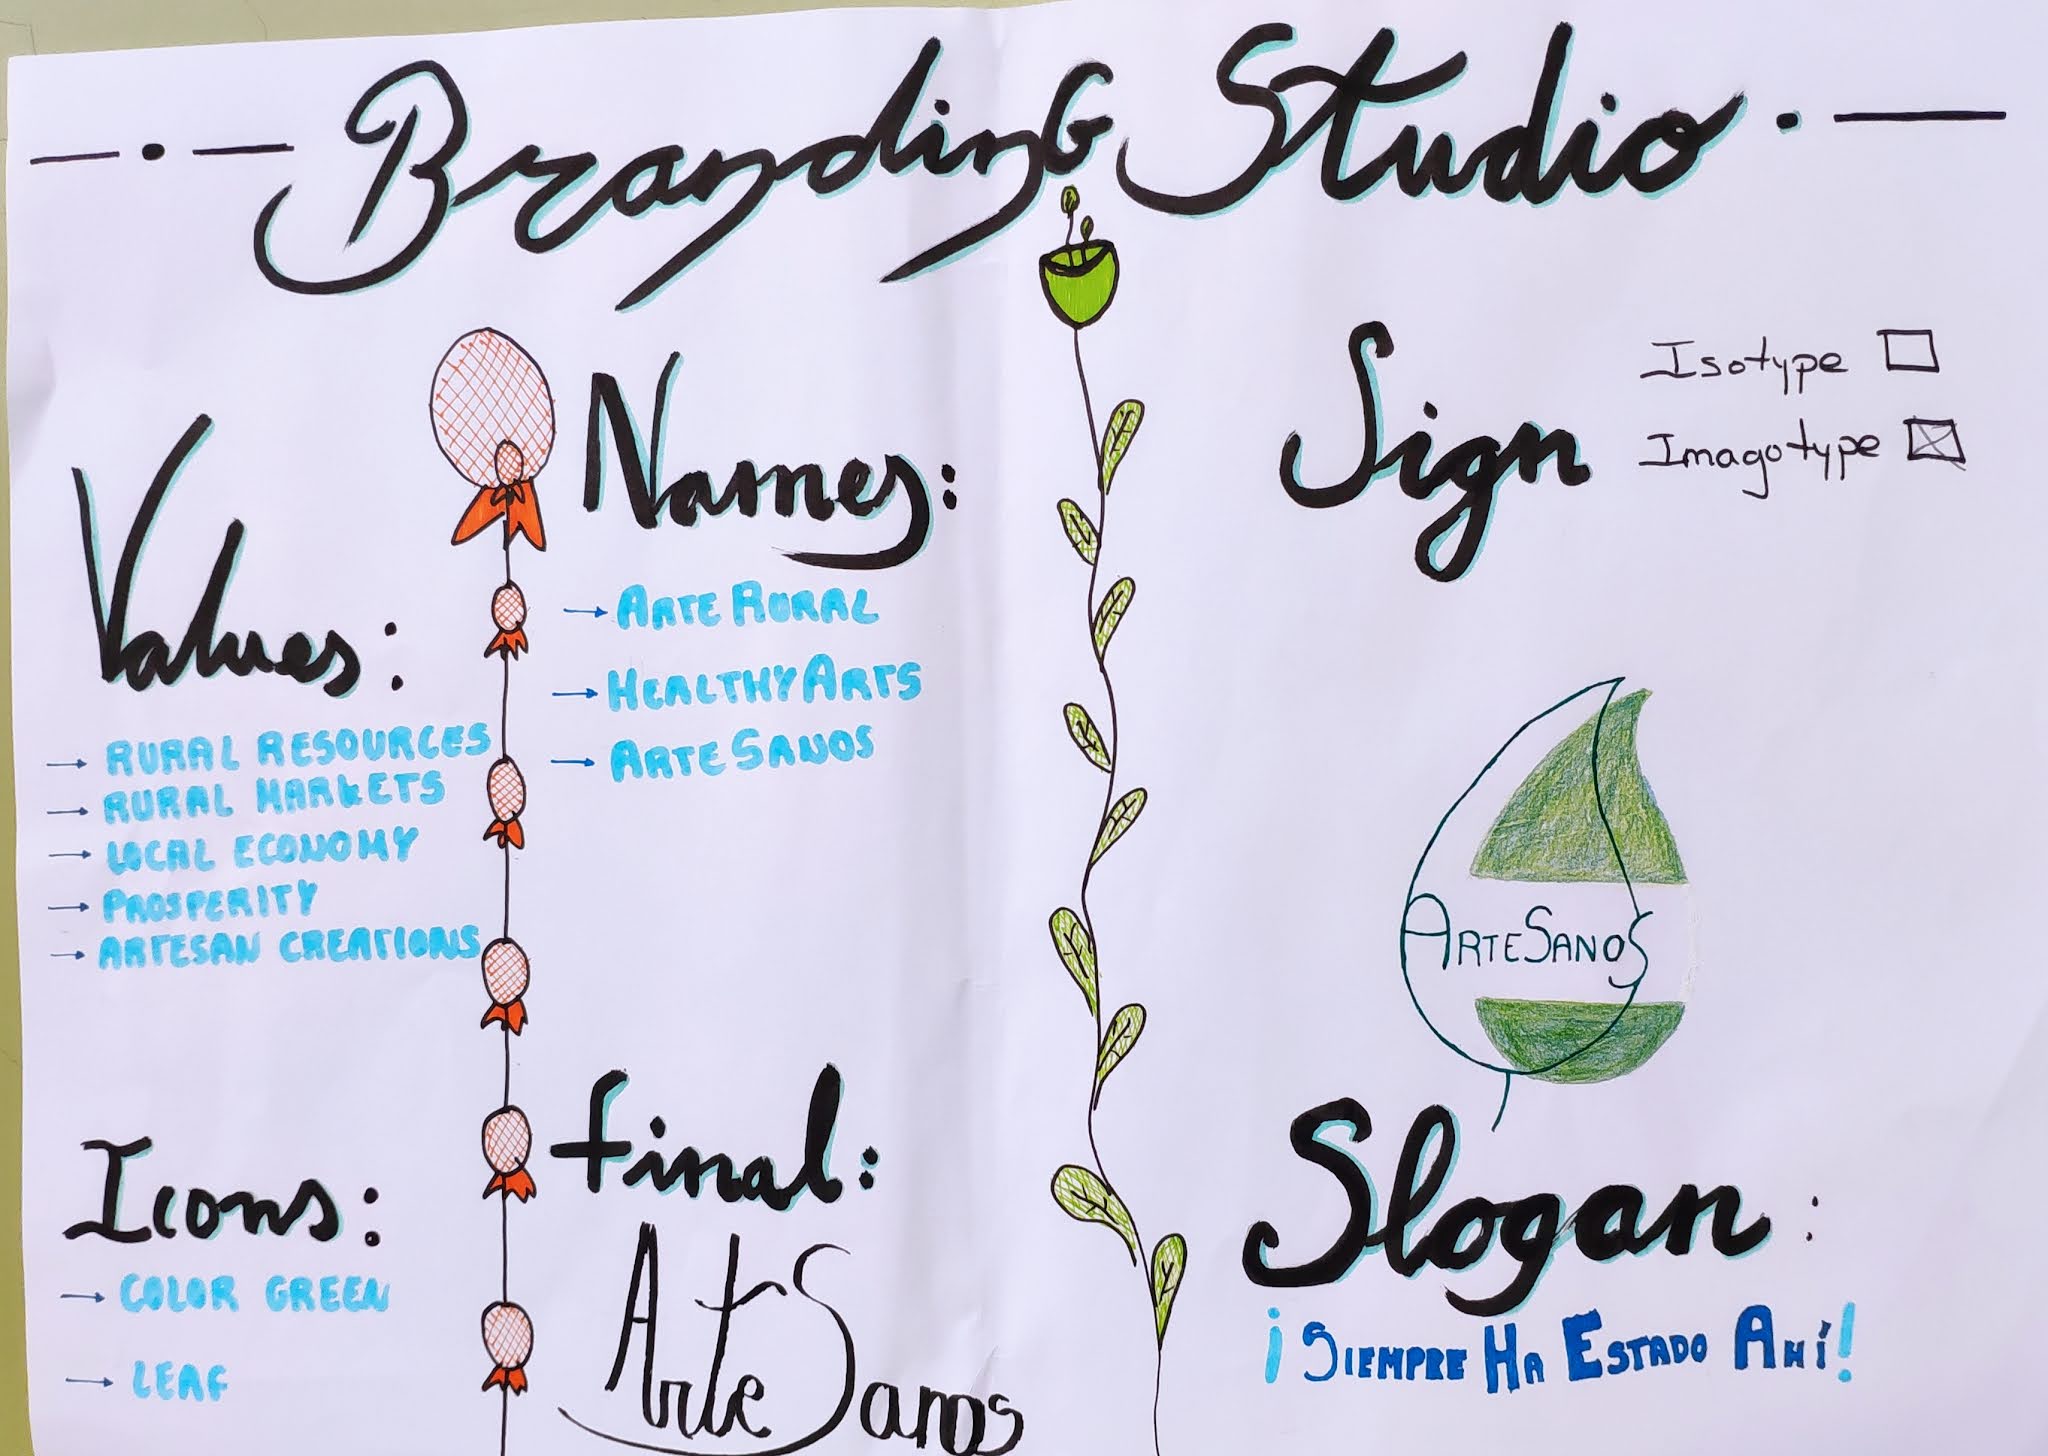 Branding Studio
Values:
RURAL RESOURCES
RURAL MARKETS
LOCAL ECONOMY
PROSPERITY
ARTESAN CREATIONS
Icons:
COLOR GREEN
LEAF
Names:
ARTE RURAL
HEALTHYARTS
ARTESANOS
Final:
ArteSanos
Sign
Isotype
Imagotype
ARTESANOS
Slogan:
¡SIEMPRE HA ESTADO AHÍ!